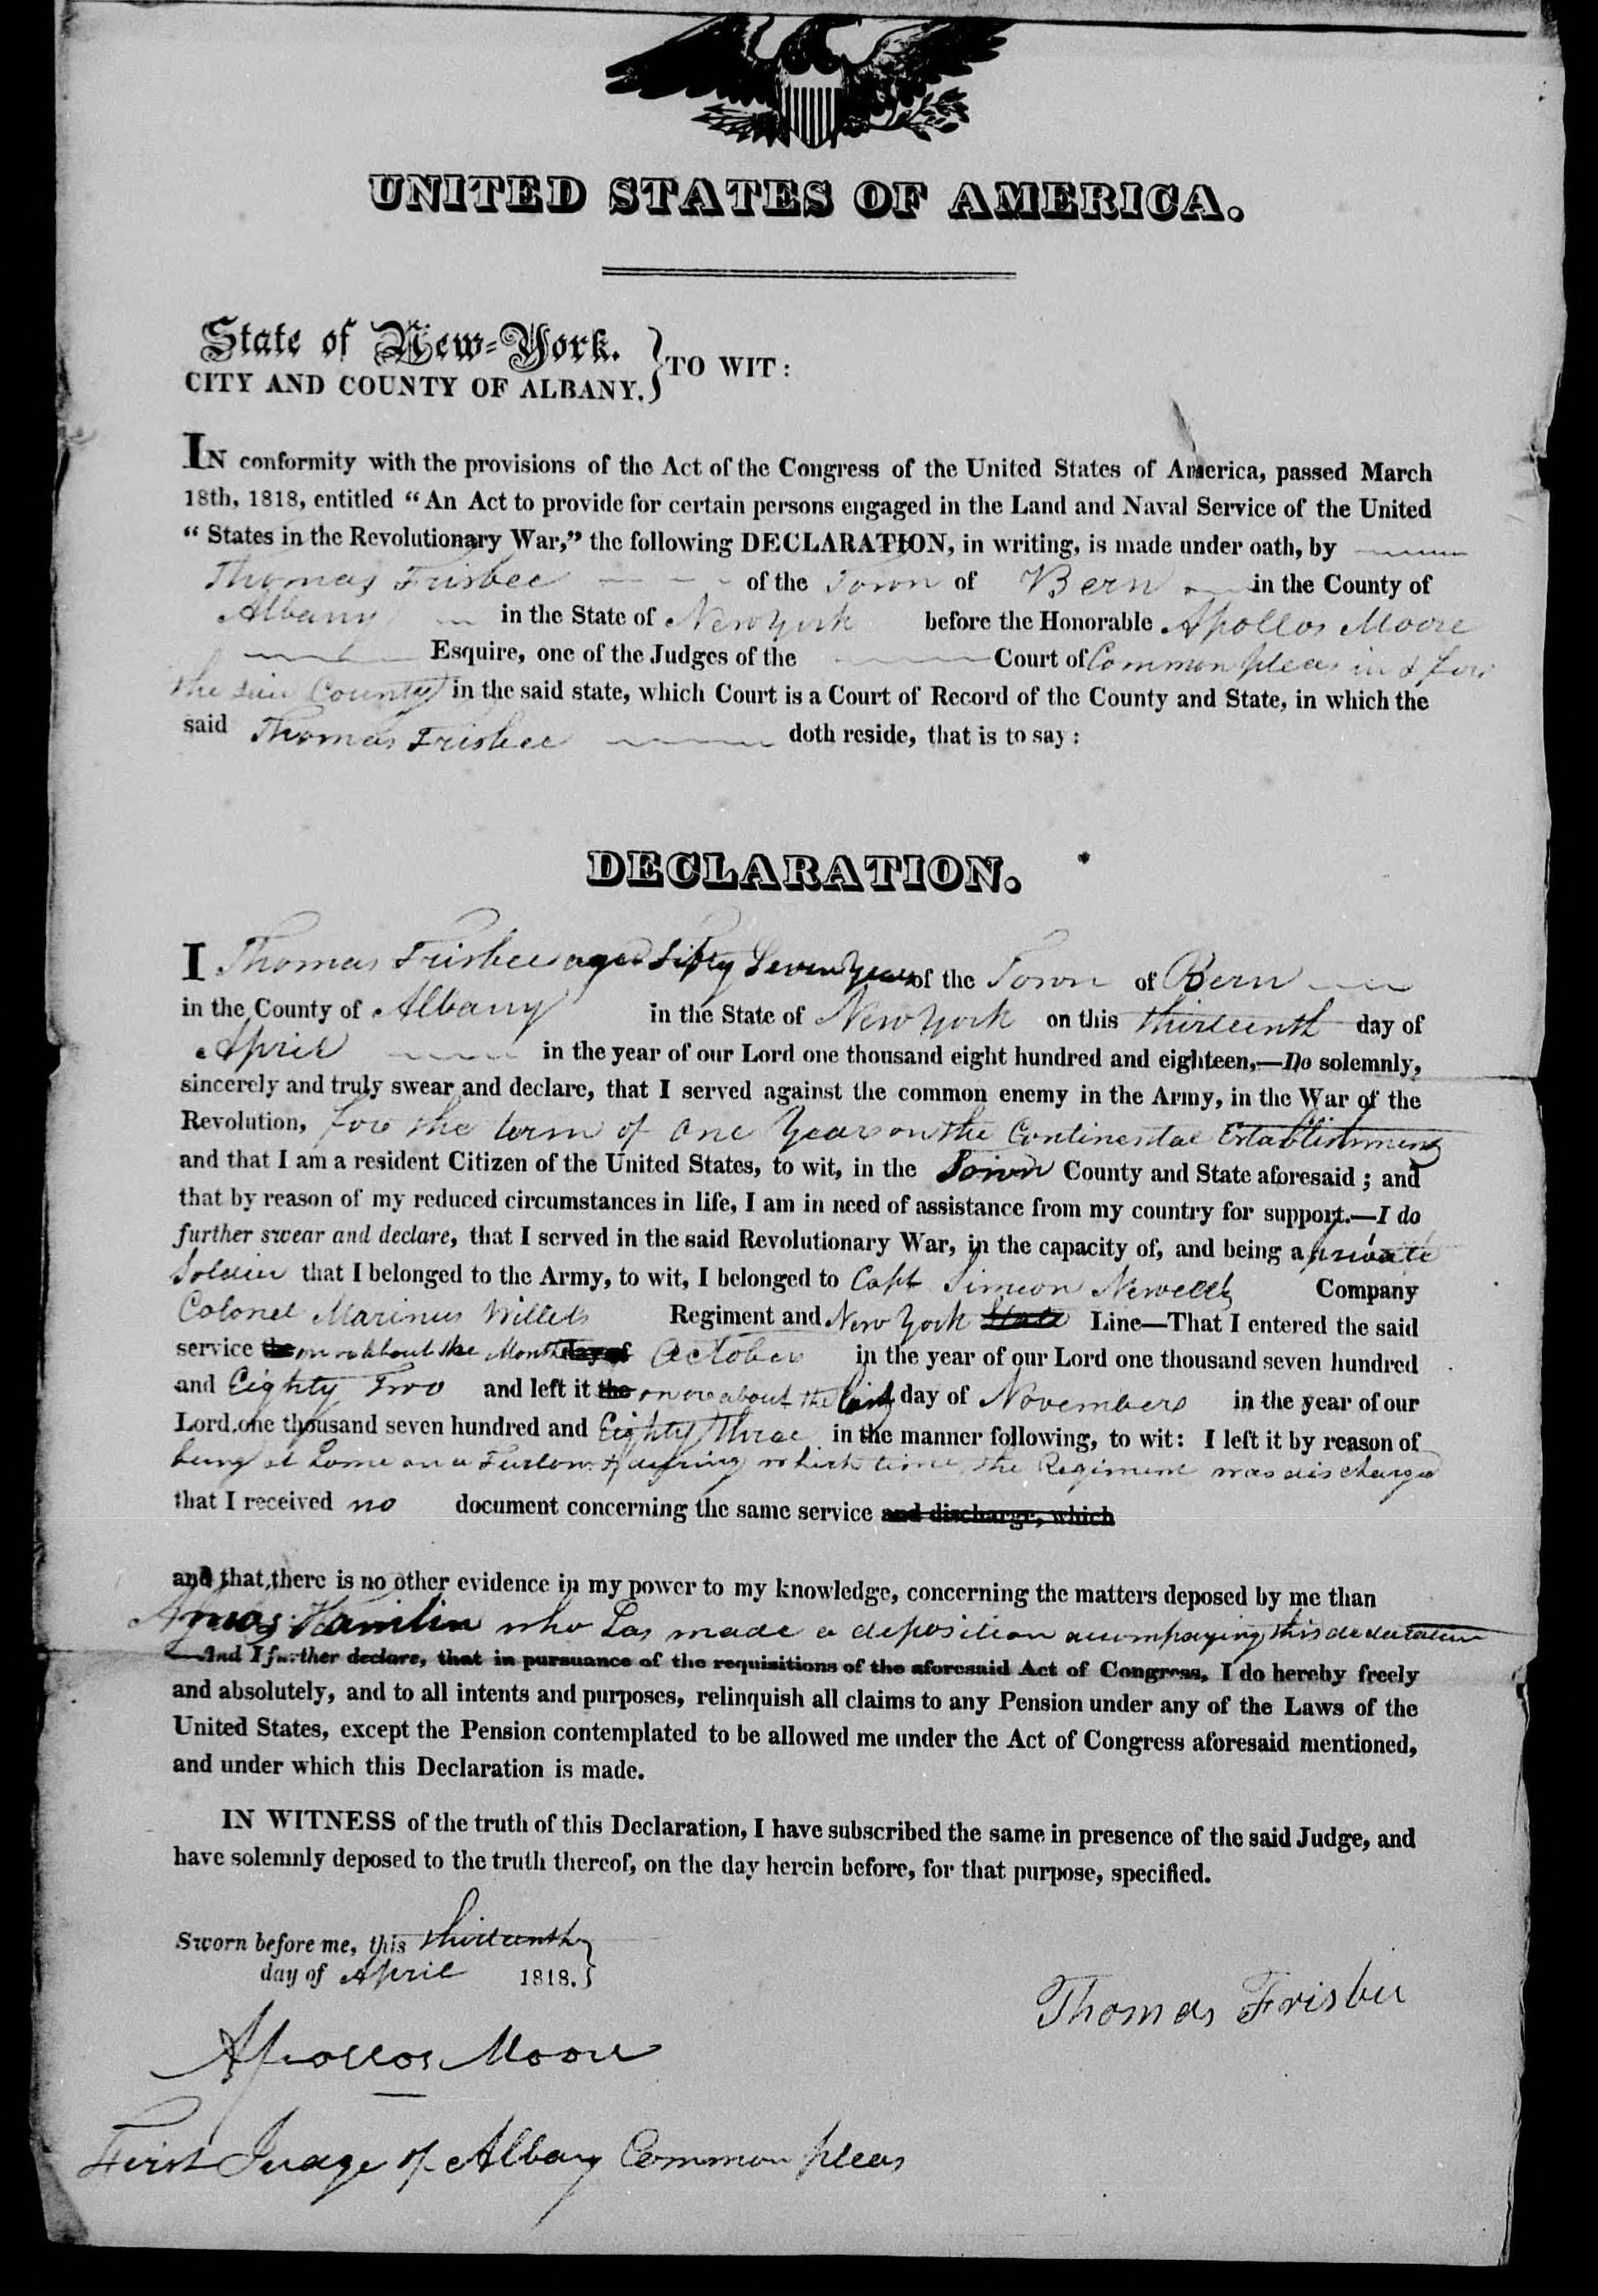 UNITED STATES OF AMERICA.
State of New-York.
CITY AND COUNTY OF ALBANY. } TO WIT:
IN conformity with the provisions of the Act of the Congress of the United States of America, passed March
18th, 1818, entitled “An Act to provide for certain persons engaged in the Land and Naval Service of the United
“ States in the Revolutionary War,” the following DECLARATION, in writing, is made under oath, by
Thomas Frisbee of the Town of Bern in the County of
Albany in the State of New York before the Honorable Apollos Moore
Esquire, one of the Judges of the Court of Common pleas in & for
the said County in the said state, which Court is a Court of Record of the County and State, in which the
said Thomas Frisbee doth reside, that is to say:
DECLARATION.
I Thomas Frisbee aged Fifty Seven Years of the Town of Bern
in the County of Albany in the State of New York on this thirteenth day of
April in the year of our Lord one thousand eight hundred and eighteen,—Do solemnly,
sincerely and truly swear and declare, that I served against the common enemy in the Army, in the War of the
Revolution, for the term of one Year on the Continental Establishment
and that I am a resident Citizen of the United States, to wit, in the Town County and State aforesaid; and
that by reason of my reduced circumstances in life, I am in need of assistance from my country for support.—I do
further swear and declare, that I served in the said Revolutionary War, in the capacity of, and being a private
Soldier that I belonged to the Army, to wit, I belonged to Capt Simeon Newells Company
Colonel Marinus Willets Regiment and New York State Line—That I entered the said
service the on or about the Month day of October in the year of our Lord one thousand seven hundred
and Eighty Two and left it the on or about the last day of November in the year of our
Lord one thousand seven hundred and Eighty three in the manner following, to wit: I left it by reason of
being at home on a Furlow & during which time the Regiment was discharged
that I received no document concerning the same service and discharge, which
and that there is no other evidence in my power to my knowledge, concerning the matters deposed by me than
Amos Hamlin who has made a deposition accompaying this declaration
And I further declare, that in pursuance of the requisitions of the aforesaid Act of Congress, I do hereby freely
and absolutely, and to all intents and purposes, relinquish all claims to any Pension under any of the Laws of the
United States, except the Pension contemplated to be allowed me under the Act of Congress aforesaid mentioned,
and under which this Declaration is made.
IN WITNESS of the truth of this Declaration, I have subscribed the same in presence of the said Judge, and
have solemnly deposed to the truth thereof, on the day herein before, for that purpose, specified.
Sworn before me, this thirteenth
day of April 1818. }
Thomas Frisbee
Apollos Moore
First Judge of Albany Common pleas